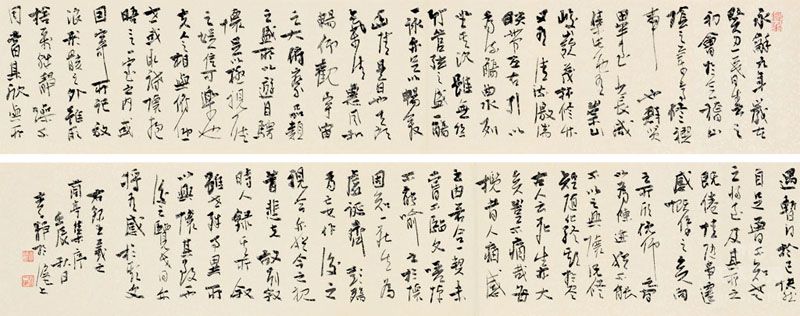 永和九年歲在
癸丑暮春之
初會於會稽山
陰之蘭亭修禊
事也群賢
畢至少長咸
集此地有崇山
峻嶺茂林修竹
又有清流激湍
映帶左右引以
為流觴曲水列
坐其次雖無絲
竹管弦之盛一觴
一詠亦足以暢叙
幽情是日也天朗
氣清惠風和
暢仰觀宇宙
之大俯察品類
之盛所以遊目騁
懷足以極視聽
之娛信可樂也
夫人之相與俯仰
一世或取諸懷抱
晤言一室之内或
因寄所託放
浪形骸之外雖取
捨萬殊靜躁不
同當其欣與所
遇暫得於己快然
自足曾不知老
之將至及其所之
既倦情隨事遷
感慨係之矣向
之所欣俯仰之間
以為陳迹猶不能
不以之興懷況修
短隨化終期於盡
古人云死生亦大
矣豈不痛哉每
攬昔人興感
之由若合一契未
嘗不臨文嗟悼
不能喻之於懷
固知一死生為
虛誕齊彭殤
為妄作後之
視今亦猶今之視
昔悲夫故列叙
時人錄其所述
雖世殊事異所
以興懷其致一也
後之覽者亦
將有感於斯文
右録王羲之
蘭亭集序
壬辰秋日
於滬上